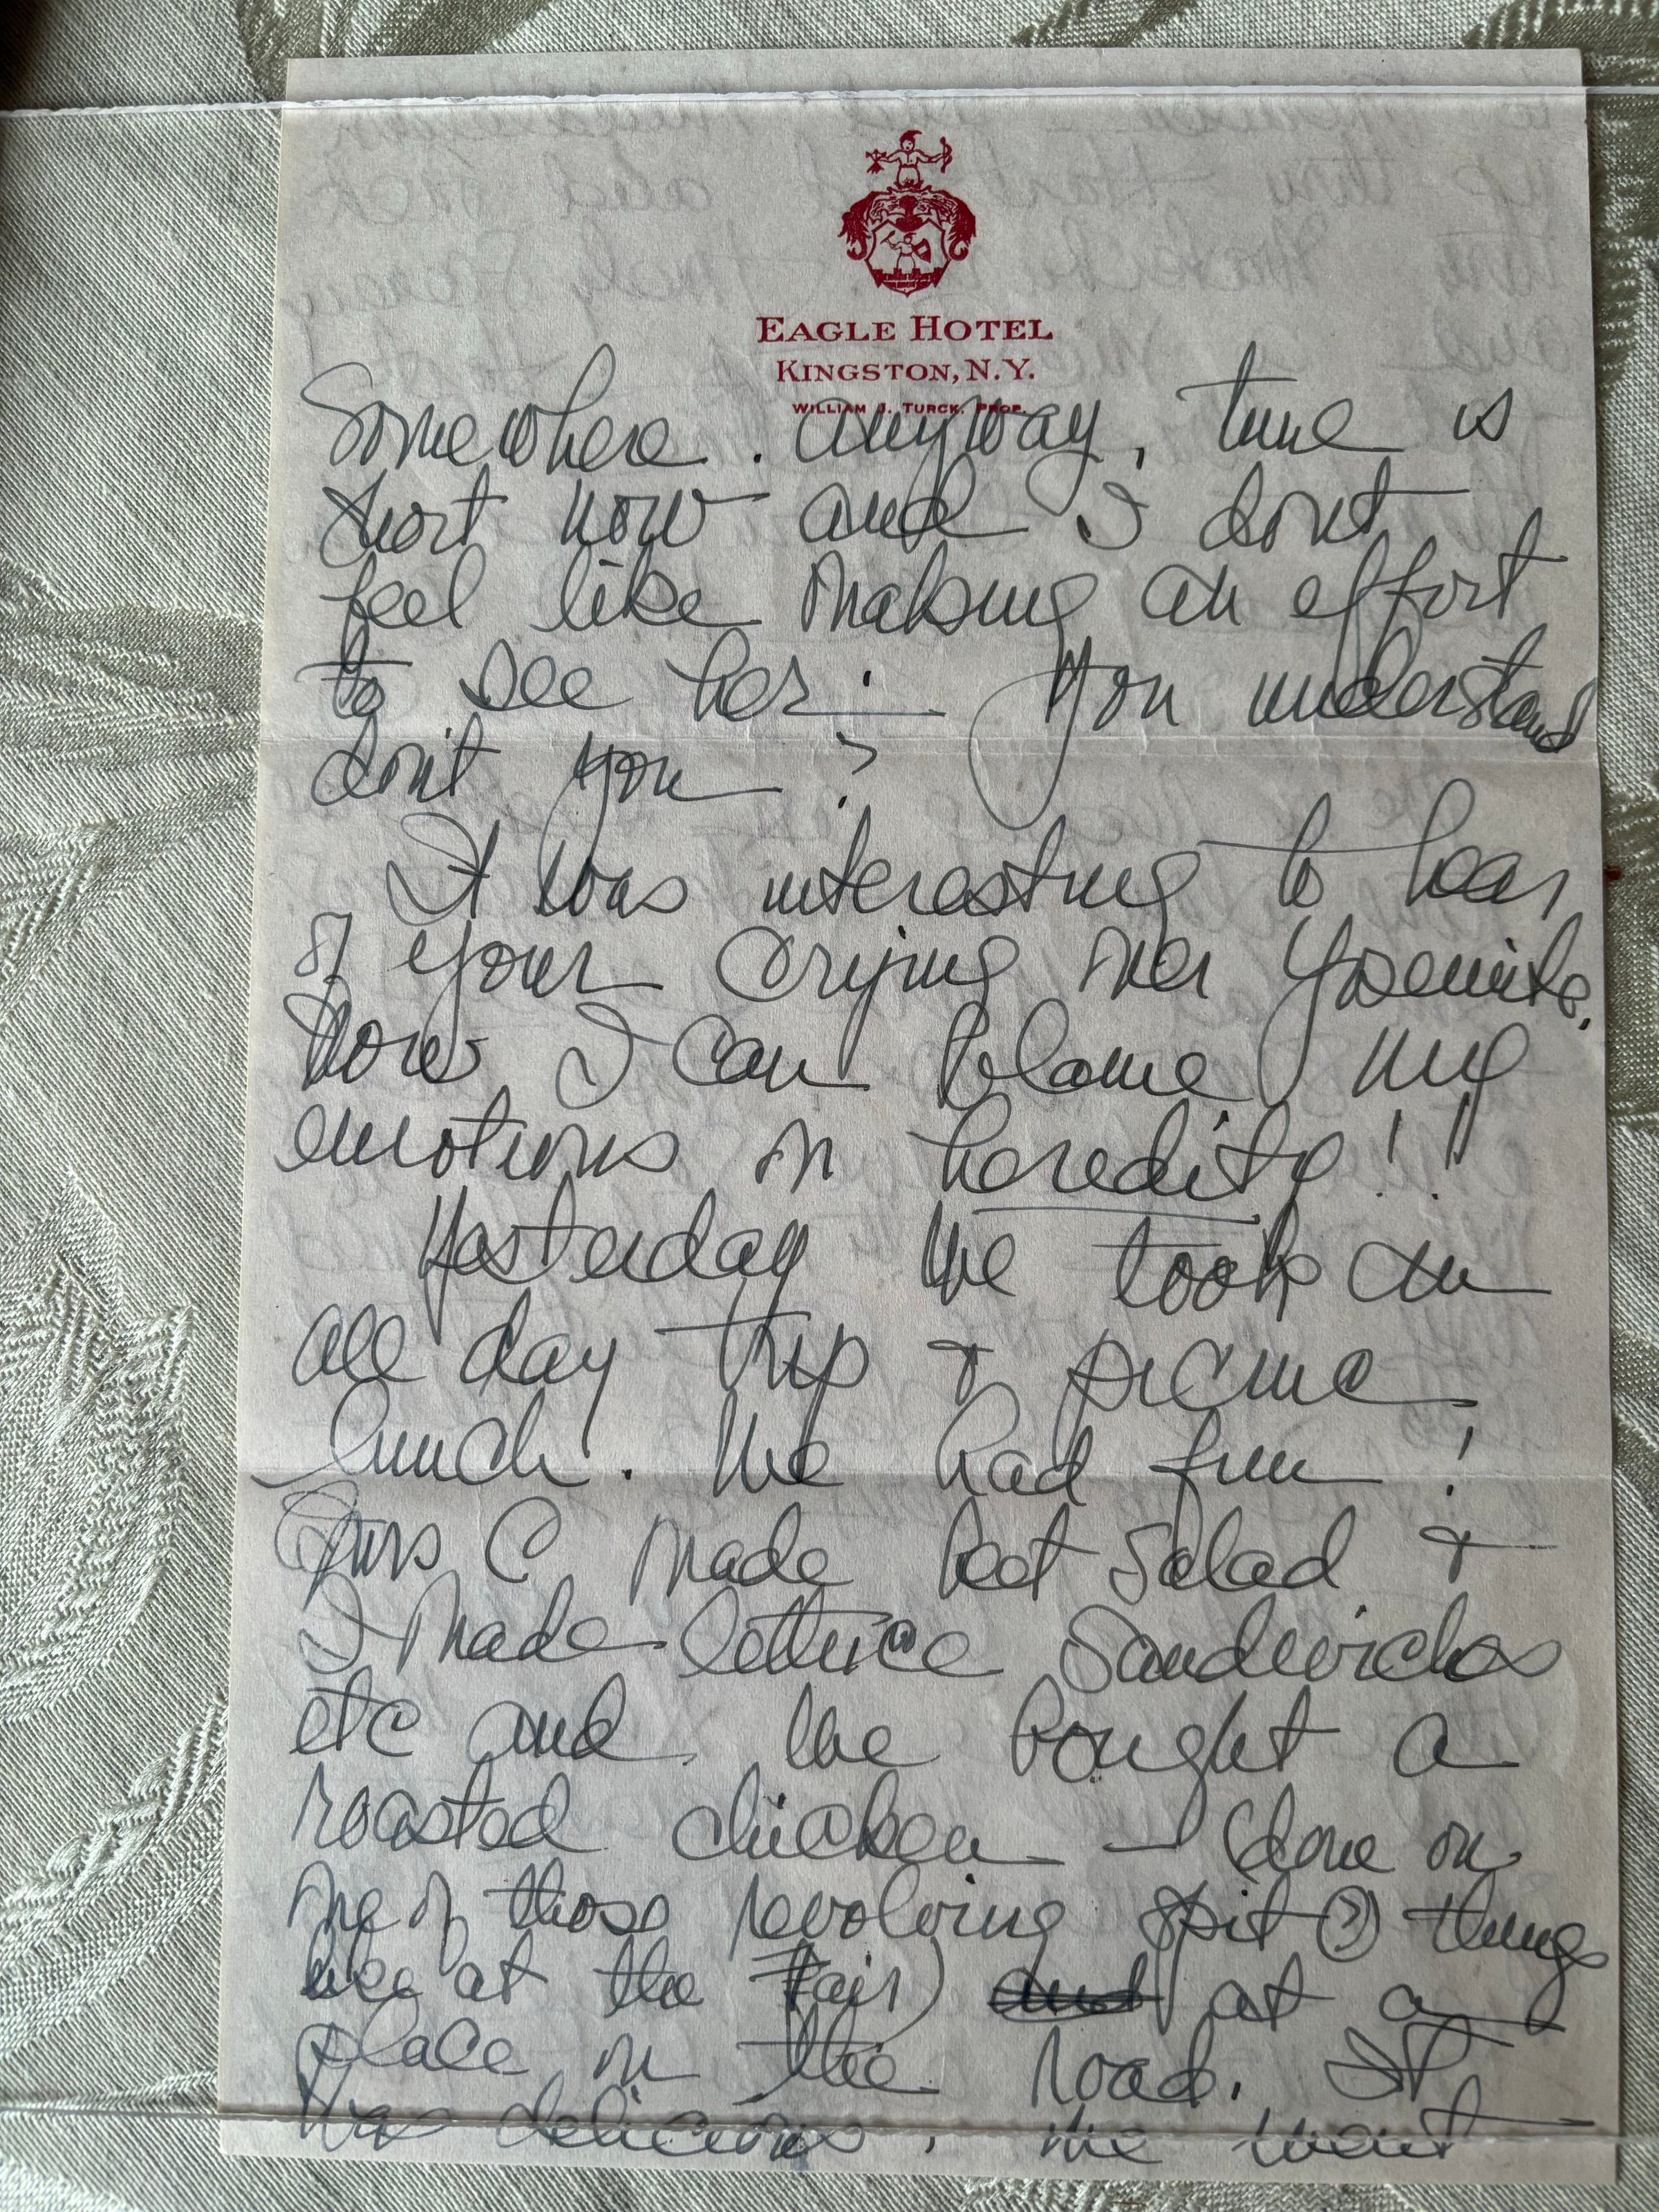 EAGLE HOTEL
KINGSTON, N.Y.
WILLIAM J. TURCK, PROP.
Somewhere. Anyway, time is
short now and I dont
feel like making an effort
to see her. You understand
don't you?
It was interesting to hear
of your crying over Yosemite.
Now I can blame my
emotions on heredity!!
Yesterday we took an
all day trip & picnic
lunch. We had fun!
Mrs C made beet salad &
I made lettuce sandwiches
etc and we bought a
roasted chicken — (done on
one of those revolving spit (?) things
like at the Fair) and at a
place on the road. It
was delicious. We went